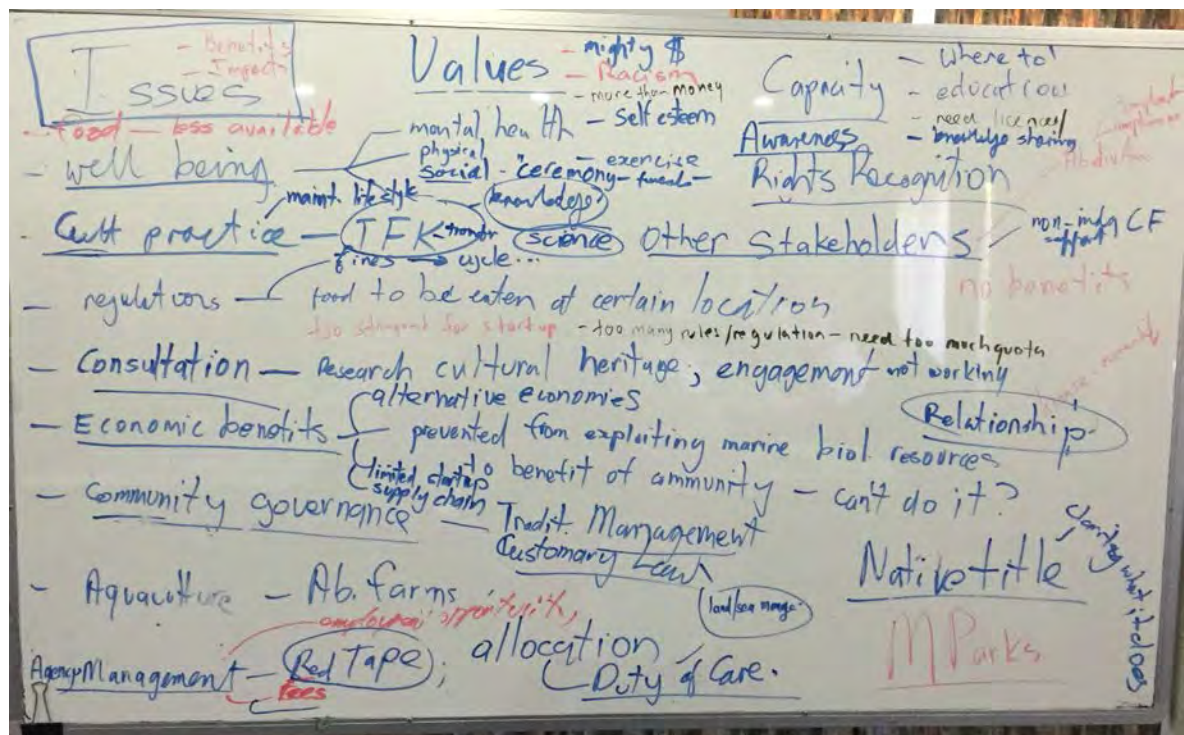 Issues - Benefits
- Impacts
Values - mighty $
- Racism
- more than money
Capacity - Where to?
- education
- need licences/
- knowledge sharing
Awareness
Rights Recognition
- food - less available
- well being - mental health - self esteem
physical - exercise
social - ceremony - funerals -
- Cult practice - maint. lifestyle
TFK knowledge
science
Other Stakeholders - non-indg CF
support
no benefits
fines → cycle...
- regulations - food to be eaten at certain location
too stringent for startup - too many rules/regulation - need too much quota
- Consultation - Research cultural heritage, engagement not working
- Economic benefits - alternative economies
prevented from exploiting marine biol. resources
to benefit of community - can't do it?
limited startup
supply chain
Relationship
- Community governance - Tradit. Management
Customary Law
land/sea manage
Native title
clarity what it does
- Aquaculture - Ab. farms
employment opportunity
Agency Management - Red Tape;
fees
allocation
Duty of Care.
M Parks